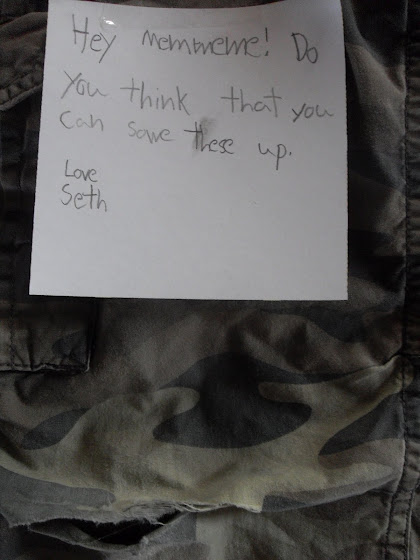 Hey memmeme! Do
you think that you
can sowe these up.
Love
Seth